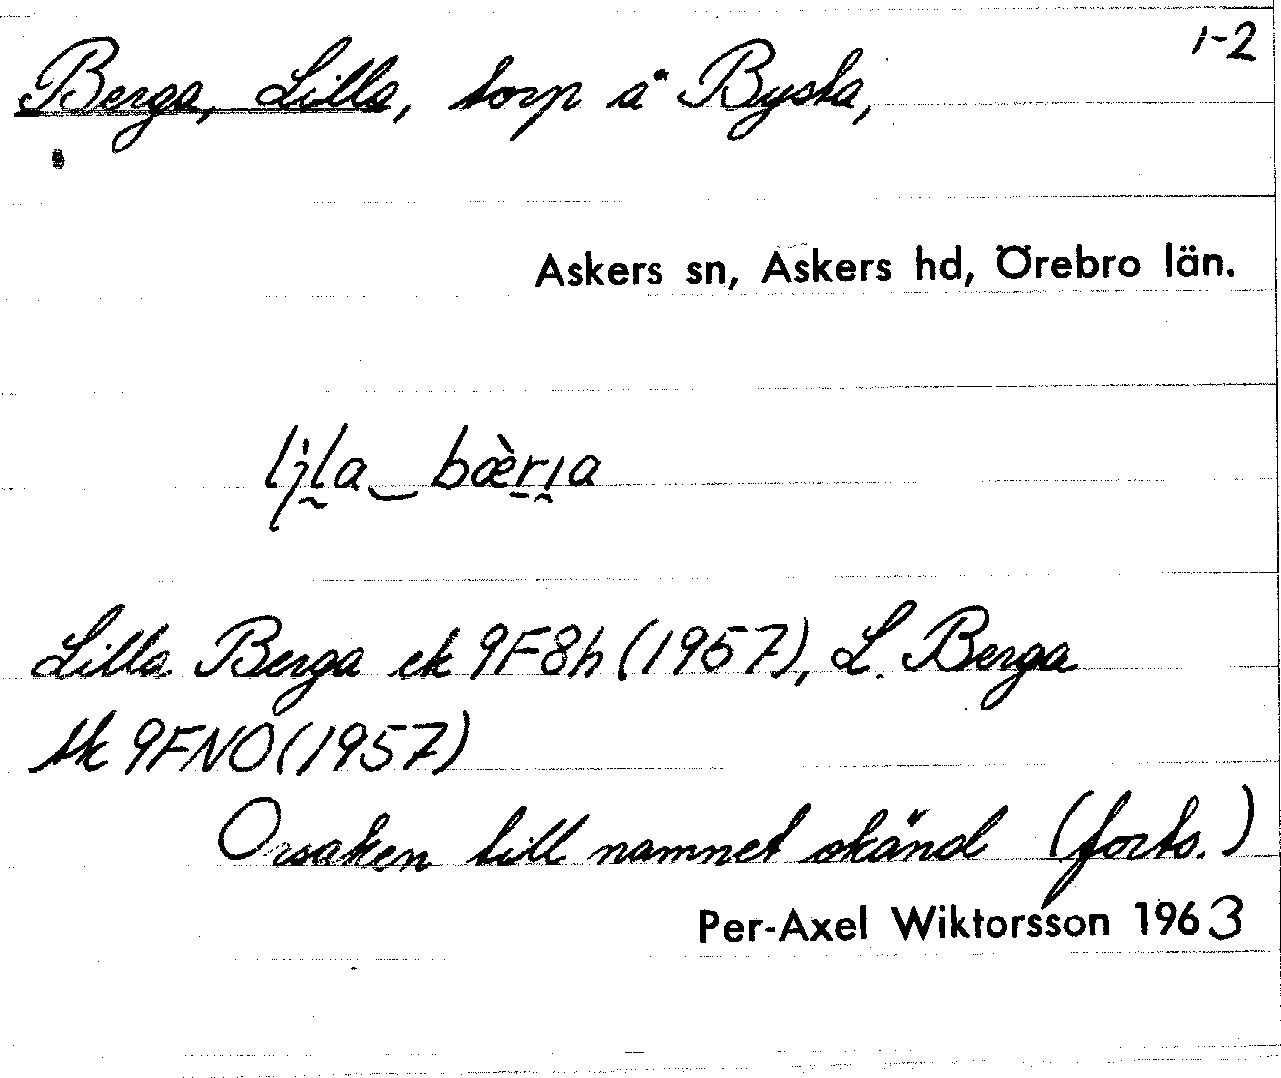 1-2
Berga, Lilla, torp å Bysta,
Askers sn, Askers hd, Örebro län.
bæ̀rıa
Lilla Berga ek 9F8h (1957), L. Berga
tk 9FNO (1957)
Orsaken till namnet okänd (forts.)
Per-Axel Wiktorsson 1963